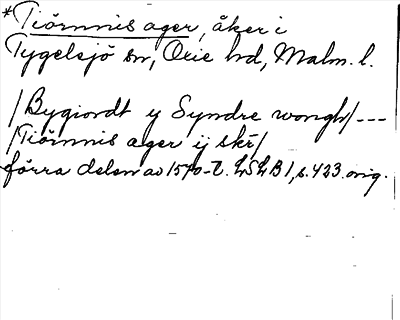 *Tiörnnis ager, åker i
Tygelsjö sn, Oxie hd, Malm. l.
/Bygiordt y Syndre wongh/---
/Tiörnnis ager ij skr̄/
förra delen av 1570-t. LSLB 1, s. 423. orig.